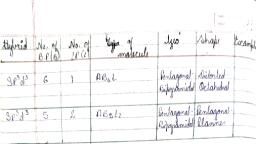 Hybrid No. of B.P(B) No. of L.P(L) Type of molecule Geo Shape Example
Sp³d³ 6 1 AB₆L Pentagonal Bipyramidal Distorted Octahedral
Sp³d³ 5 2 AB₅L₂ Pentagonal Bipyramidal Pentagonal Planar